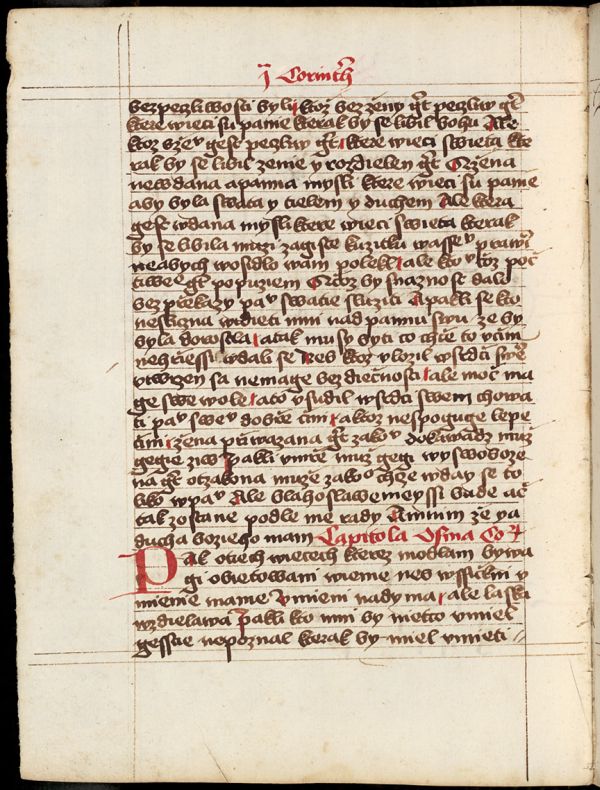 j Corinth
bezpeczliwosti byli ktoz bez zeny gt peczliw gt
ktere wieci su panie kterak by se libil bohu Ale
ktoz gest peczliw gt ktere wieci swieta kte
rak by se libil zenie y rozdielen gt Gzena
newdana a panna mysli ktere wieci su panie
aby byla swata y tielem y duchem Ale ktera
gest wdana mysli ktere wieci swieta kterak
by se libila muzi zagiste kuzitku wassev prawi
neabych wosidlo wam polekl ale kto
bez prziekazy pav swatie sluziti A pakli se kto
by nad pannu swu ze by
byla dorostla a tak musy byti to chce to
wdali se Nes ktoz vlozil wsrdci
vtwrzen sa nemage bezdiecnosti ale moc ma
ge swe wole a to vsudil wsrdci swem chowa
ti pav swev dobrze cini a ktoz nespoguge lepe
cini zena prziwazana gt zakov dokawadz muz
gegie ziw Pakli vmrze muz gegi wyswoboze
na gt otzakona muze zakoo chze wday se to
liko wpav Ale blahoslawenieyssi bude ac
tak zostane podle me rady A mnim ze ya
ducha bozieho mam Capitola Osma Co
Pak otiech wiecech kterez modlam bywa
gi obietowani wieme nes wssickni v
mienie mame Vmieni nadyma ale laska
wzdielawa Pakli kto mni by nietco vmiel
gesstie nepoznal kterak by miel vmieti